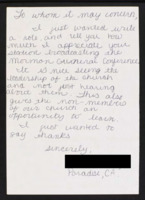 To whom it may concern,
I just wanted write
a note, and tell you how
much I appreciate your
station broadcasting the
Mormon General Conference.
It is nice seeing the
leadership of the church
and not just hearing
about them. This also
gives the non-members
of our church an
opportunity to learn.
I just wanted to
say thanks
Sincerely,
Paradise, CA